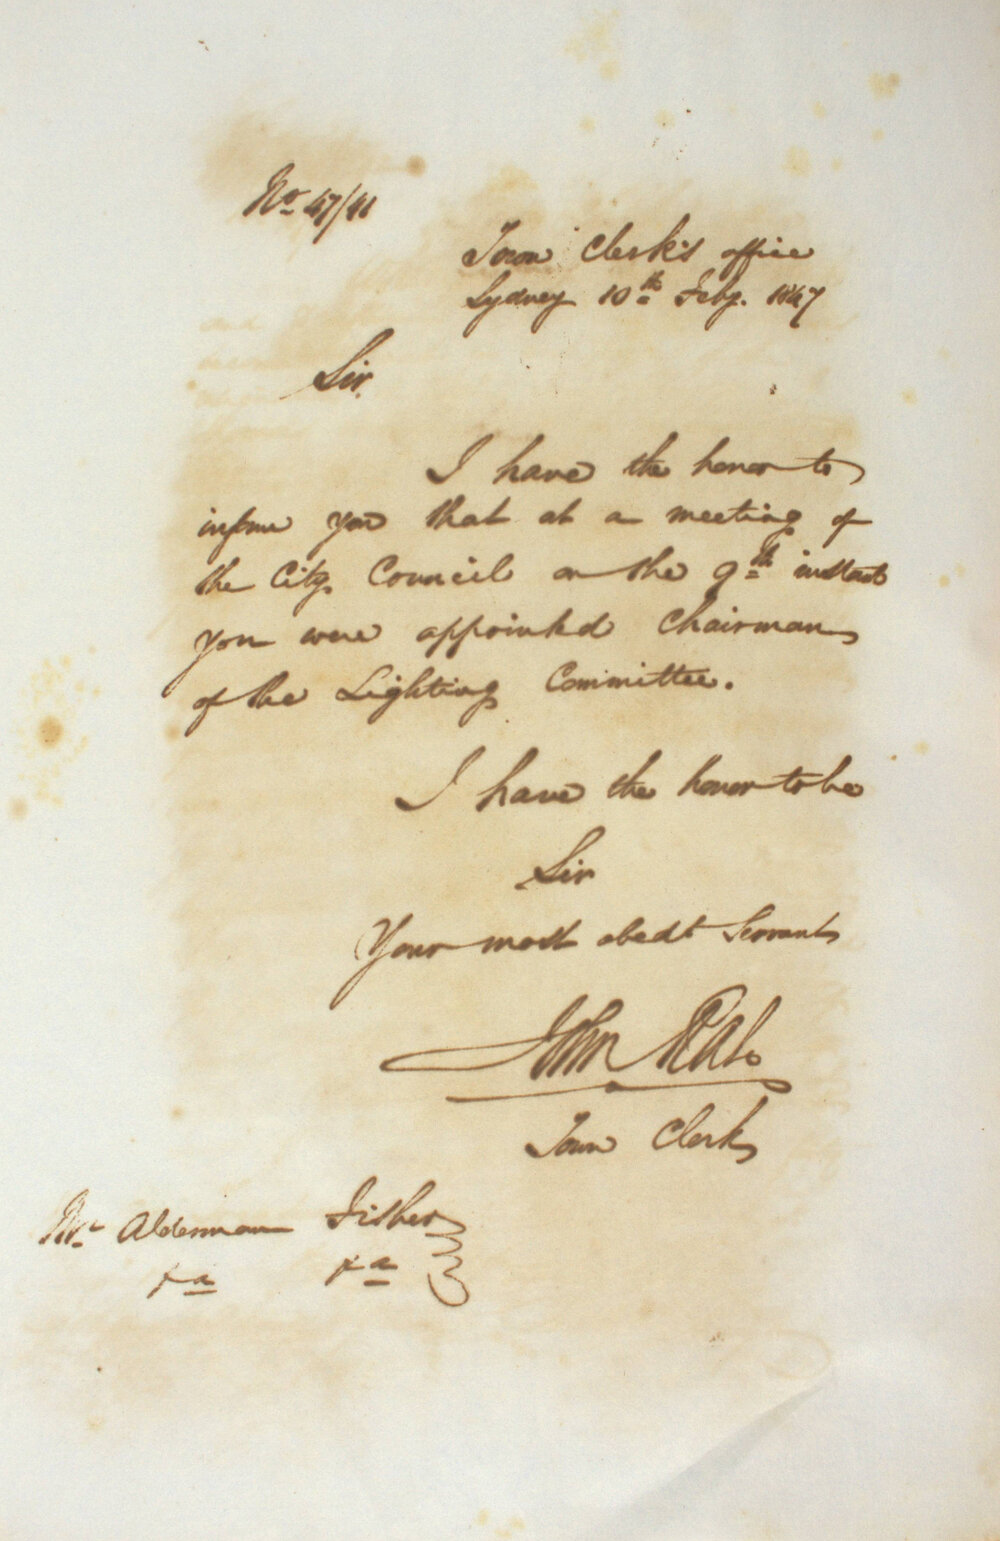 No. 47/41
Town Clerk's office
Sydney 10th Feby. 1847
Sir,
I have the honor to
inform you that at a meeting of
the City Council on the 9th instant
you were appointed Chairman
of the Lighting Committee.
I have the honor to be
Sir
Your most obedt Servant
John Rae
Town Clerk
Mr. Alderman Fisher
&a &a